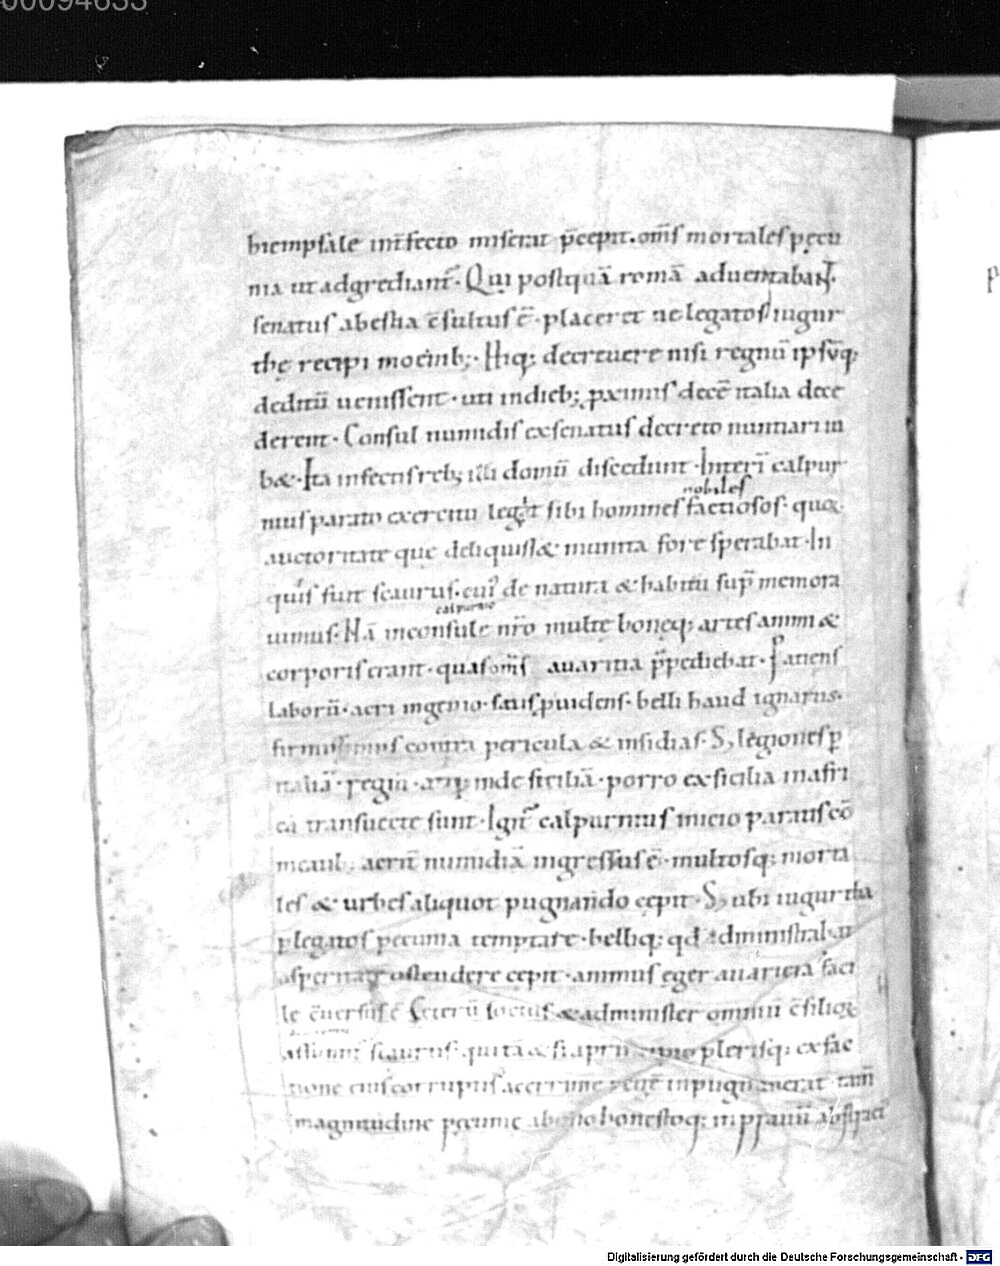 00094633
hiempsale int̄fecto miserat p̄cepit. om̄s mortales pecu
nia ut adgrediant̄. Qui postquā romā aduentabant.
senatus a bestia c̄sultus ē. placeret ne legatos iugur
thę recipi moenib;. Hiq; decreuere nisi regnū ipsūq;
deditū uenissent. uti indieb; p̱ximis decē italia dece
derent. Consul numidis exsenatus decreto nuntiari iu
b&. Ita infectis reb; illi domū discedunt. Interī calpur
nobiles
nius parato exercitu legit sibi homines factiosos. quoꝝ
auctoritate que deliquiss& munita fore sperabat. In
quis fuit scaurus. cui' de natura & habitu sup̄ memora
calpurnio
uimus. Nā inconsule nr̄o multę bonęq; artes animi &
corporis erant. quas om̄s auaritia p̄pediebat. Patiens
laborū. acri ingenio. satis ꝓuidens. belli haud ignarus.
firmissimus contra pericula & insidias. S; legiones ꝑ
italiā. regiū. atq; inde siciliā. porro ex sicilia in afri
cā transuecte sunt. Igit̄ calpurnius inicio paratis cō
meatib; acrit̄ numidiā ingressus ē. multosq; morta
les & urbes aliquot pugnando cepit. S; ubi iugurtha
ꝑ legatos pecunia temptare. belliq; qđ administrabat
asperitatē ostendere cepit. animus eger auaricia faci
le c̄uersus ē Ceterū socius & administer omniū c̄silioꝝ
scaurus. qui tā& si a principio plerisq; ex fac
tione eius corruptis acerrime regē inpugnauerat tam̄
magnitudine pecunię abono honestoq; in prauū abstract'
Digitalisierung gefördert durch die Deutsche Forschungsgemeinschaft - DFG